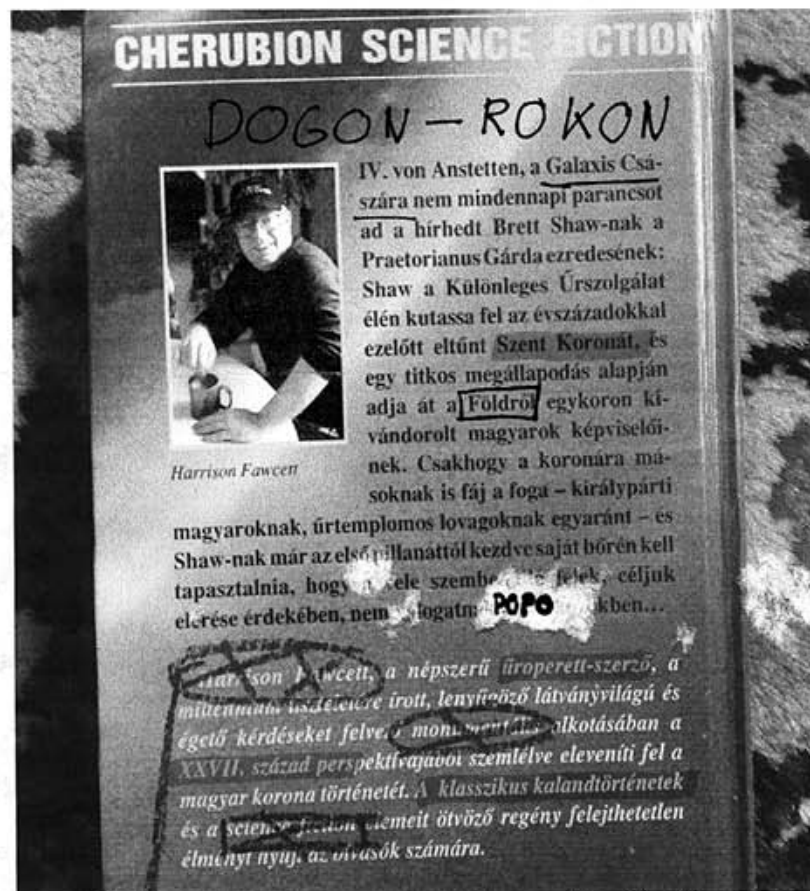 CHERUBION SCIENCE FICTION
DOGON – ROKON
IV. von Anstetten, a Galaxis Csa-
szára nem mindennapi parancsot
ad a hírhedt Brett Shaw-nak a
Praetorianus Gárda ezredesének:
Shaw a Különleges Űrszolgálat
élén kutassa fel az évszázadokkal
ezelőtt eltűnt Szent Koronát, és
egy titkos megállapodás alapján
adja át a Földről egykoron ki-
vándorolt magyarok képviselői-
nek. Csakhogy a koronára má-
soknak is fáj a foga – királypárti
Harrison Fawcett
magyaroknak, űrtemplomos lovagoknak egyaránt – és
Shaw-nak már az első pillanattól kezdve saját bőrén kell
tapasztalnia, hogy felek, céljuk
elérése érdekében, nem POPO
Harrison Fawcett, a népszerű űroperett-szerző, a
írott, lenyűgöző látványvilágú és
égető kérdéseket felvető monumentális alkotásában a
XXVII. század perspektívájából szemlélve eleveníti fel a
magyar korona történetét. A klasszikus kalandtörténetek
és a science fiction elemeit ötvöző regény felejthetetlen
élményt nyújt az olvasók számára.